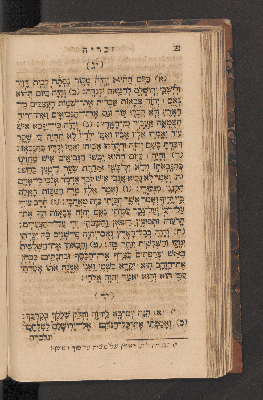 זכריה
(יג)
(א) ביום ההוא יהיה מקור נפתח לבית דויד
ולישבי ירושלם לחטאת ולנדה: (ב) והיה ביום ההוא
נאם ׀ יהוה צבאות אכרית את־שמות העצבים מן־
הארץ ולא יזכרו עוד וגם את־הנביאים ואת־רוח
הטמאה אעביר מן־הארץ: (ג) והיה כי־ינבא איש
עוד ואמרו אליו אביו ואמו ילדיו לא תחיה כי שקר
דברת בשם יהוה ודקרהו אביהו ואמו ילדיו בהנבאו:
(ד) והיה ׀ ביום ההוא יבשו הנביאים איש מחזינו
בהנבאתו ולא ילבשו אדרת שער למען כחש:
(ה) ואמר לא נביא אנכי איש עבד אדמה אנכי כי אדם
הקנני מנעורי: (ו) ואמר אליו מה המכות האלה
בין ידיך ואמר אשר הכיתי בית מאהבי: (ז) חרב עורי
על־רעי ועל־גבר עמיתי נאם יהוה צבאות הך את־
הרעה ותפוצין הצאן והשבתי ידי על־הצערים:
(ח) והיה בכל־הארץ נאם־יהוה פי־שנים בה יכרתו
יגועו והשלשית יותר בה: (ט) והבאתי את־השלשית
באש וצרפתים כצרף את־הכסף ובחנתים כבחן
את־הזהב הוא יקרא בשמי ואני אענה אתו אמרתי
עמי הוא והוא יאמר יהוה אלהי:
(יד)
(א) הנה יום־בא ליהוה וחלק שללך בקרבך:
(ב) ואספתי את־כל־הגוים אל־ירושלם למלחמה
ונלכדה